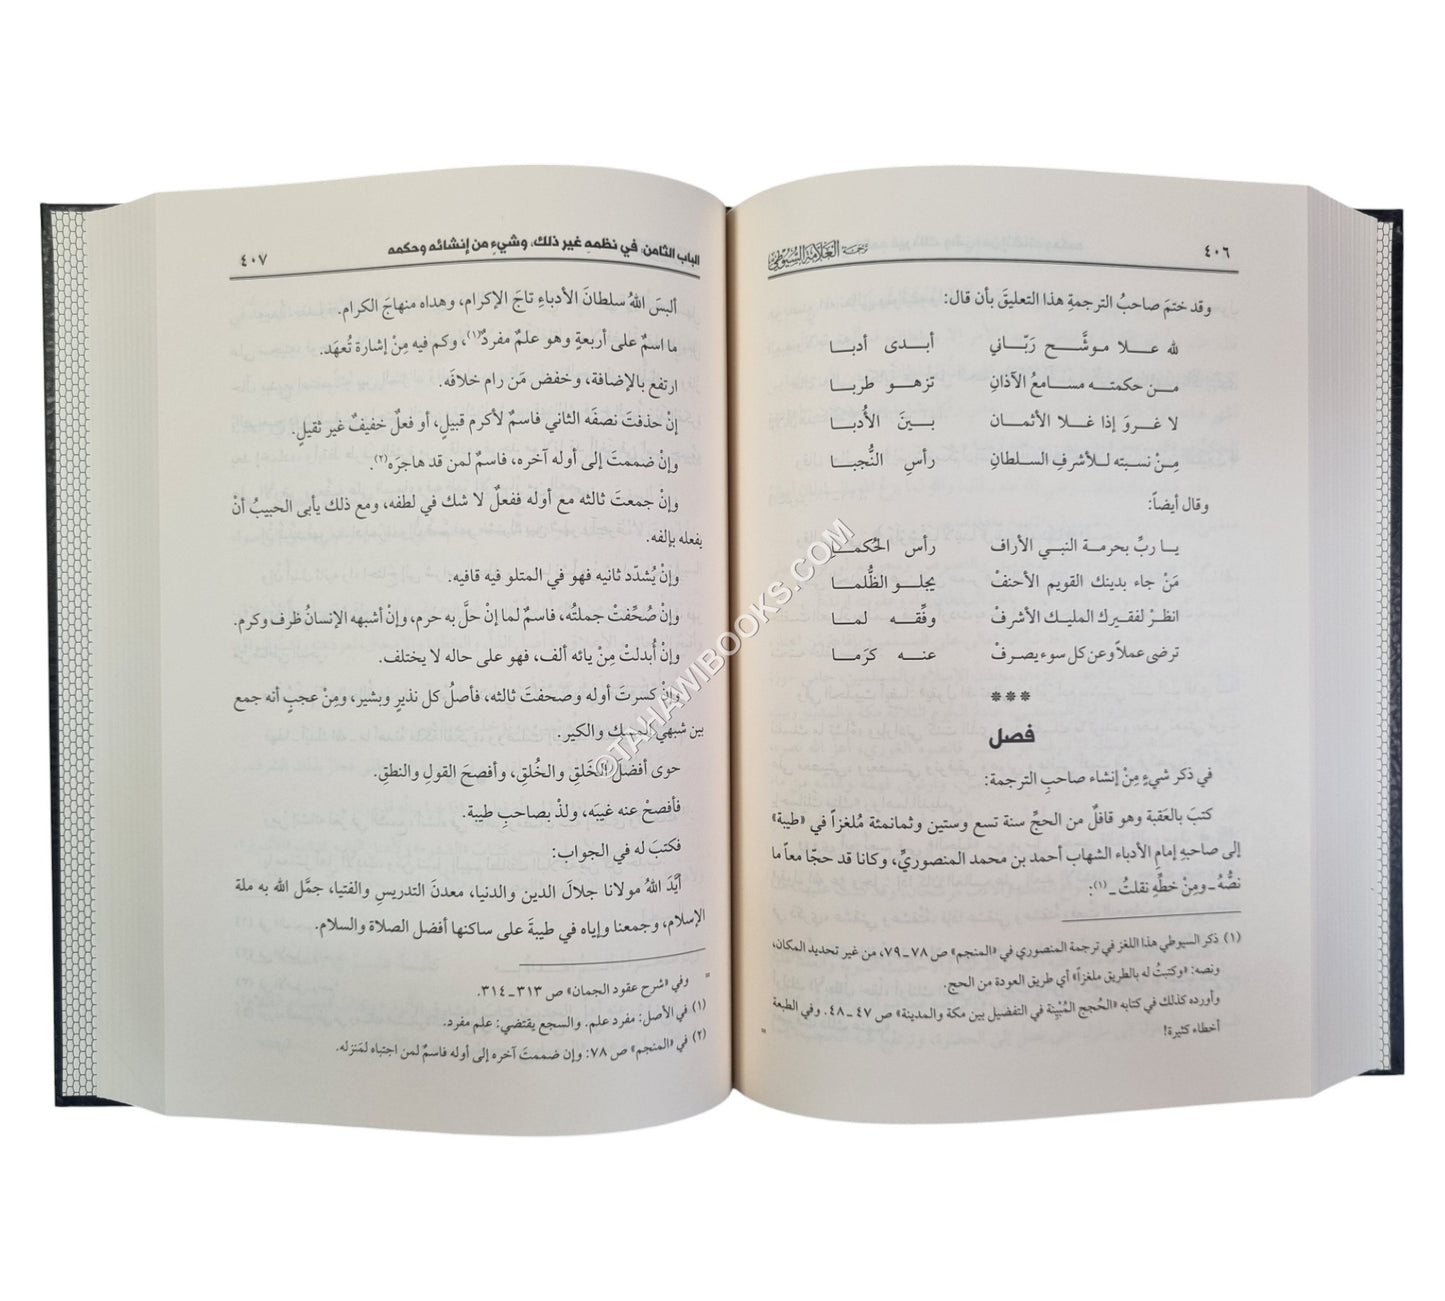 ٤٠٦ ترجمة العلامة السيوطي
وقد ختمَ صاحبُ الترجمةِ هذا التعليقَ بأن قال:
لله عــلا موشَّــح رَبّاني أبـدى أدبـا
مـن حكمتـه مسـامعُ الآذانِ تزهـو طربـا
لا غـروَ إذا غـلا الأثمـان بـينَ الأُدبـا
مِنْ نسبته للأشرفِ السلطانِ رأسِ النُّجبـا
وقال أيضاً:
يـا ربِّ بحرمة النبي الأراف رأس الحُكمـا
مَنْ جاء بدينك القويم الأحنفْ يجلـو الظُّلما
انظرْ لفقيرك المليك الأشرفْ وفِّقـه لمـا
ترضى عملاً وعن كل سوء يصرفْ عنـه كرَمـا
***
فصل
في ذكر شيءٍ مِنْ إنشاء صاحبِ الترجمة:
كتبَ بالعَقبة وهو قافلٌ من الحجِّ سنة تسع وستين وثمانمئة مُلغزاً في «طيبة»
إلى صاحبِهِ إمامِ الأدباء الشهاب أحمد بن محمد المنصوريِّ، وكانا قد حجّا معاً ما
نصُّهُ ـ ومِنْ خطِّهِ نقلتُ ـ(١):
(١) ذكر السيوطي هذا اللغز في ترجمة المنصوري في «المنجم» ص ٧٨ ـ ٧٩، من غير تحديد المكان،
ونصه: «وكتبتُ له بالطريق ملغزاً» أي طريق العودة من الحج.
وأورده كذلك في كتابه «الحُجج المُبِيْنَة في التفضيل بين مكة والمدينة» ص ٤٧ ـ ٤٨. وفي الطبعة
أخطاء كثيرة! =
الباب الثامن، في نظمهِ غير ذلك، وشيءٍ من إنشائه وحكمه ٤٠٧
ألبسَ اللهُ سلطانَ الأدباءِ تاجَ الإكرام، وهداه منهاجَ الكرام.
ما اسمٌ على أربعةٍ وهو علمٌ مفردٌ(١)، وكم فيه مِنْ إشارة تُعهَد.
ارتفع بالإضافة، وخفض مَن رام خلافَه.
إنْ حذفتَ نصفَه الثاني فاسمٌ لأكرم قبيلٍ، أو فعلٌ خفيفٌ غير ثقيلٍ.
وإنْ ضممتَ إلى أوله آخره، فاسمٌ لمن قد هاجرَه(٢).
وإنْ جمعتَ ثالثه مع أوله ففعلٌ لا شك في لطفه، ومع ذلك يأبى الحبيبُ أنْ
يفعله بإلفه.
وإنْ يُشدّد ثانيه فهو في المتلو فيه قافيه.
وإنْ صُحِّفتْ جملتُه، فاسمٌ لما إنْ حلَّ به حرم، وإنْ أشبهه الإنسانُ ظرف وكرم.
وإنْ أُبدلتْ مِنْ يائه ألف، فهو على حاله لا يختلف.
وإنْ كسرتَ أوله وصحفتَ ثالثه، فأصلُ كل نذيرٍ وبشير، ومِنْ عجبٍ أنه جمع
بين شبهي المسك والكير.
حوى أفضل الخَلقِ والخُلقِ، وأفصحَ القولِ والنطقِ.
فأفصحْ عنه غيبَه، ولذْ بصاحبِ طيبة.
فكتبَ له في الجواب:
أيَّدَ اللهُ مولانا جلالَ الدين والدنيا، معدنَ التدريسِ والفتيا، جمَّل الله به ملة
الإسلام، وجمعنا وإياه في طيبةَ على ساكنها أفضل الصلاة والسلام.
= وفي «شرح عقود الجمان» ص ٣١٣ ـ ٣١٤.
(١) في الأصل: مفرد علم. والسجع يقتضي: علم مفرد.
(٢) في «المنجم» ص ٧٨: وإن ضممتَ آخره إلى أوله فاسمٌ لمن اجتباه لمَنزله.
©TAHAWIBOOKS.COM